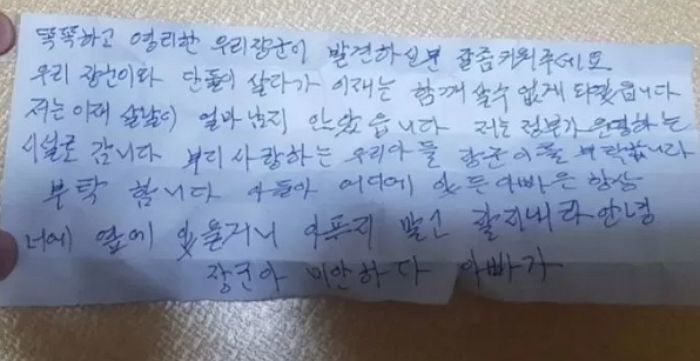 똑똑하고 영리한 우리장군이 발견하신분 잘좀키워주세요
우리 장군이와 단둘이 살다가 이재는 함께 살수 없게 되었읍니다
저는 이재 살날이 얼마남지 안았읍니다 저는 정부가 운영하는
시설로 갑니다 부디 사랑하는 우리아들 장군이를 부탁합니다
부탁 합니다 아들아 어디에 있든 아빠은 항상
너에 옆에 있을거니 아푸지 말고 잘지내라 안녕
장군아 미안하다 아빠가